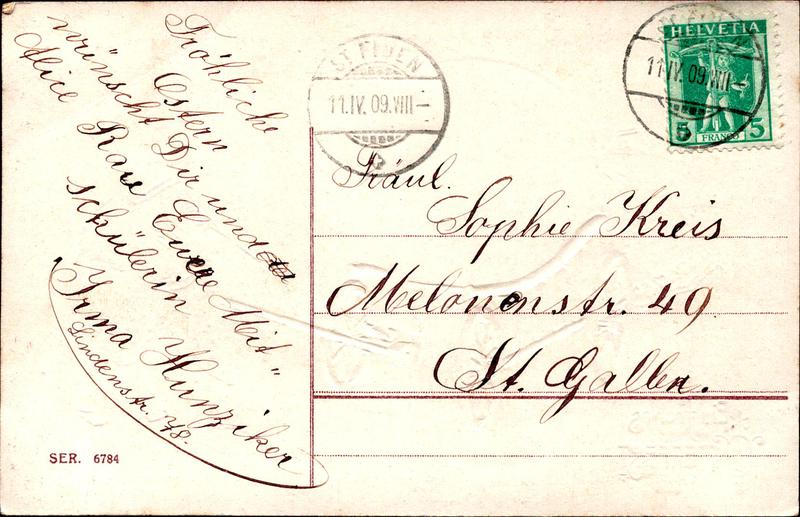 Fröhliche
Ostern
wünscht Dir und
Alice Rau Euere Mit"
schülerin
Irma Hunziker
Lindenstr. 78.
SER. 6784
ST. FIDEN
11.IV.09.VIII-
HELVETIA
5 FRANCO 5
ST. FIDEN
11.IV.09.VIII-
Fräul.
Sophie Kreis
Melonenstr. 49
St. Gallen.